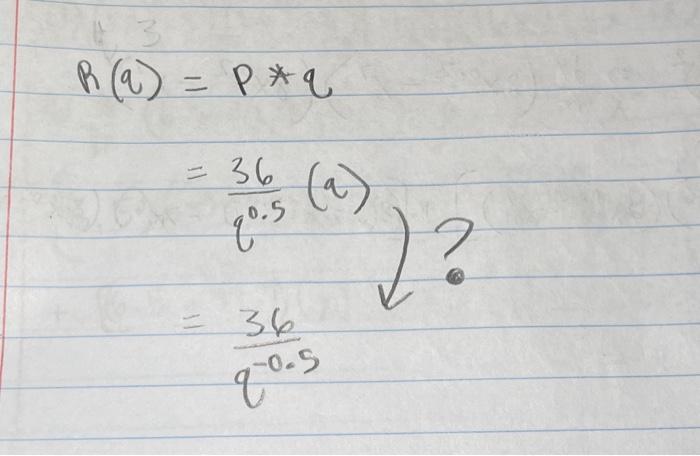 R(q) = P * q
= 36/q^0.5 (q)
?
= 36/q^-0.5